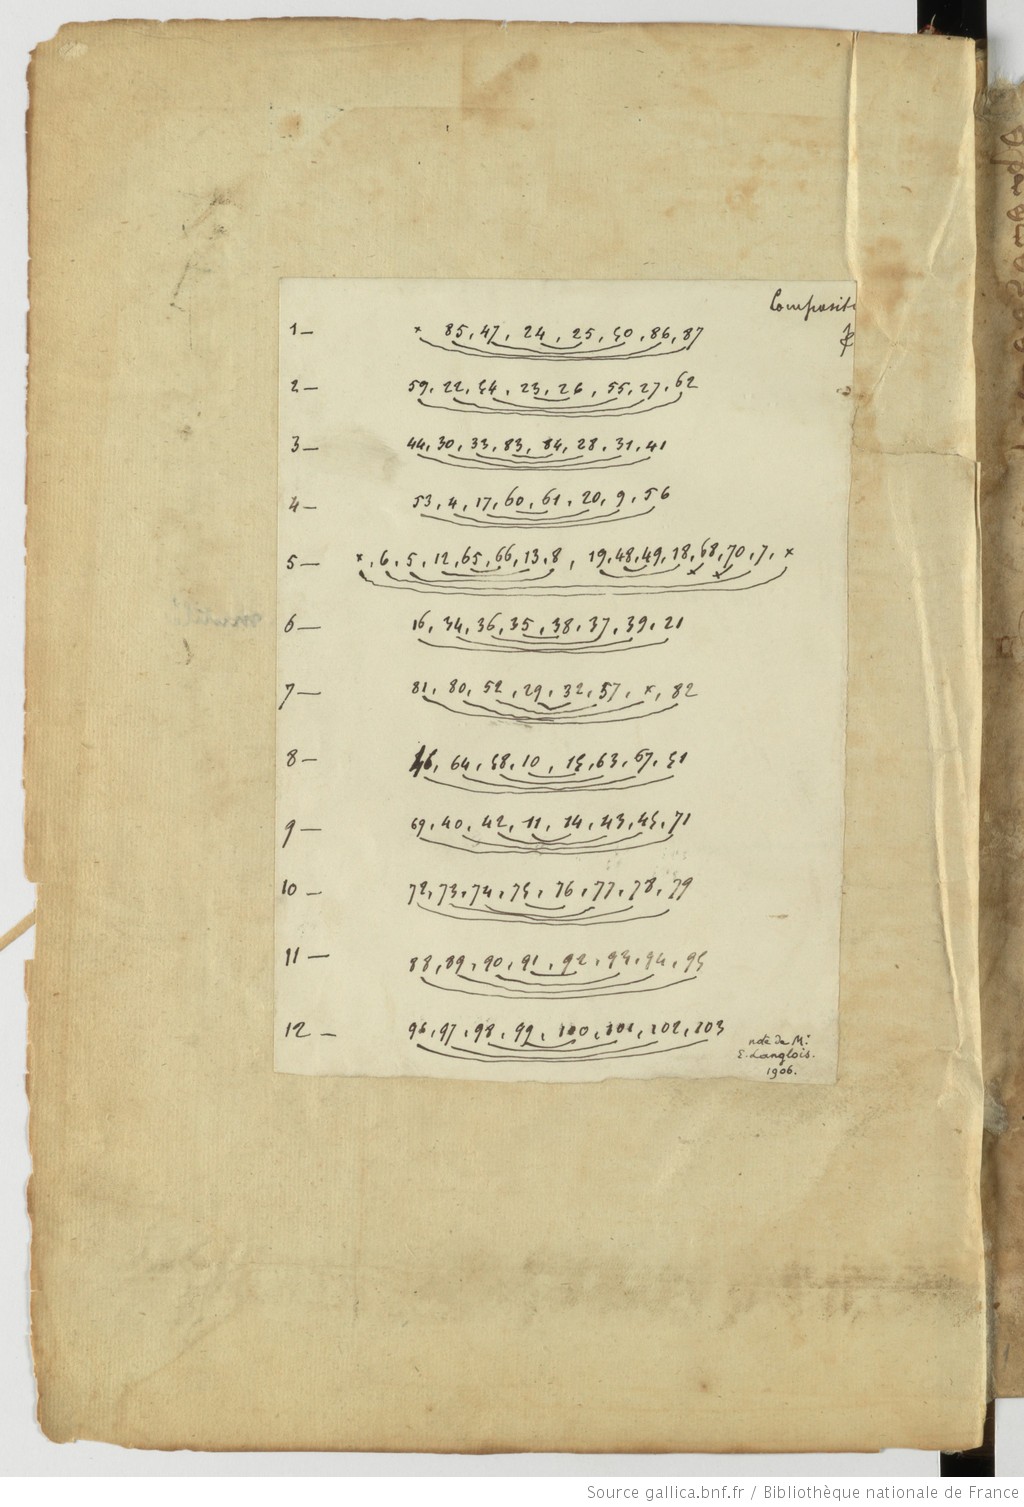 Composit
1 — × 85, 47, 24, 25, 50, 86, 87
2 — 59, 22, 54, 23, 26, 55, 27, 62
3 — 44, 30, 33, 83, 84, 28, 31, 41
4 — 53, 4, 17, 60, 61, 20, 9, 56
5 — ×, 6, 5, 12, 65, 66, 13, 8, 19, 48, 49, 18, 68, 70, 7, ×
6 — 16, 34, 36, 35, 38, 37, 39, 21
7 — 81, 80, 52, 29, 32, 57, ×, 82
8 — 46, 64, 58, 10, 15, 63, 67, 51
9 — 69, 40, 42, 11, 14, 43, 45, 71
10 — 72, 73, 74, 75, 76, 77, 78, 79
11 — 88, 89, 90, 91, 92, 93, 94, 95
12 — 96, 97, 98, 99, 100, 101, 102, 103
note de M.
E. Langlois.
1906.
Source gallica.bnf.fr / Bibliothèque nationale de France